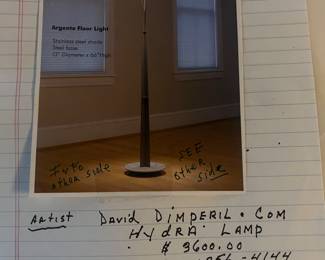 Argento Floor Light
Stainless steel shade
Steel base
13" Diameter x 66" High
INFO
other side
SEE
other
side
ARTIST DAVID DIMPERIL.COM
HYDRA LAMP
$ 3600.00
-4144